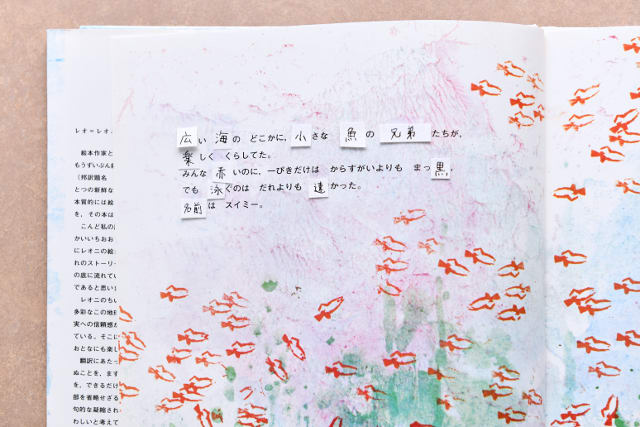 広い 海の どこかに、小さな 魚の 兄弟たちが、
楽しく くらしてた。
みんな 赤いのに、一ぴきだけは からすがいよりも まっ黒、
でも 泳ぐのは だれよりも 速かった。
名前は スイミー。
レオ=レオ
絵本作家と
もうずいぶん前
（邦訳題名
とつの新鮮な
本質的には絵
を、その本は
こんど私の
かいいちおお
にレオニの絵
れのストーリ
の底に流れてい
であると思い
レオニのちい
多彩なこの地
実への信頼感が
ている。そこに
おとなにも楽し
翻訳にあたっ
ぬことを、まず
を、できるだけ
部を省略せざる
句的な凝縮され
わしいと考えて